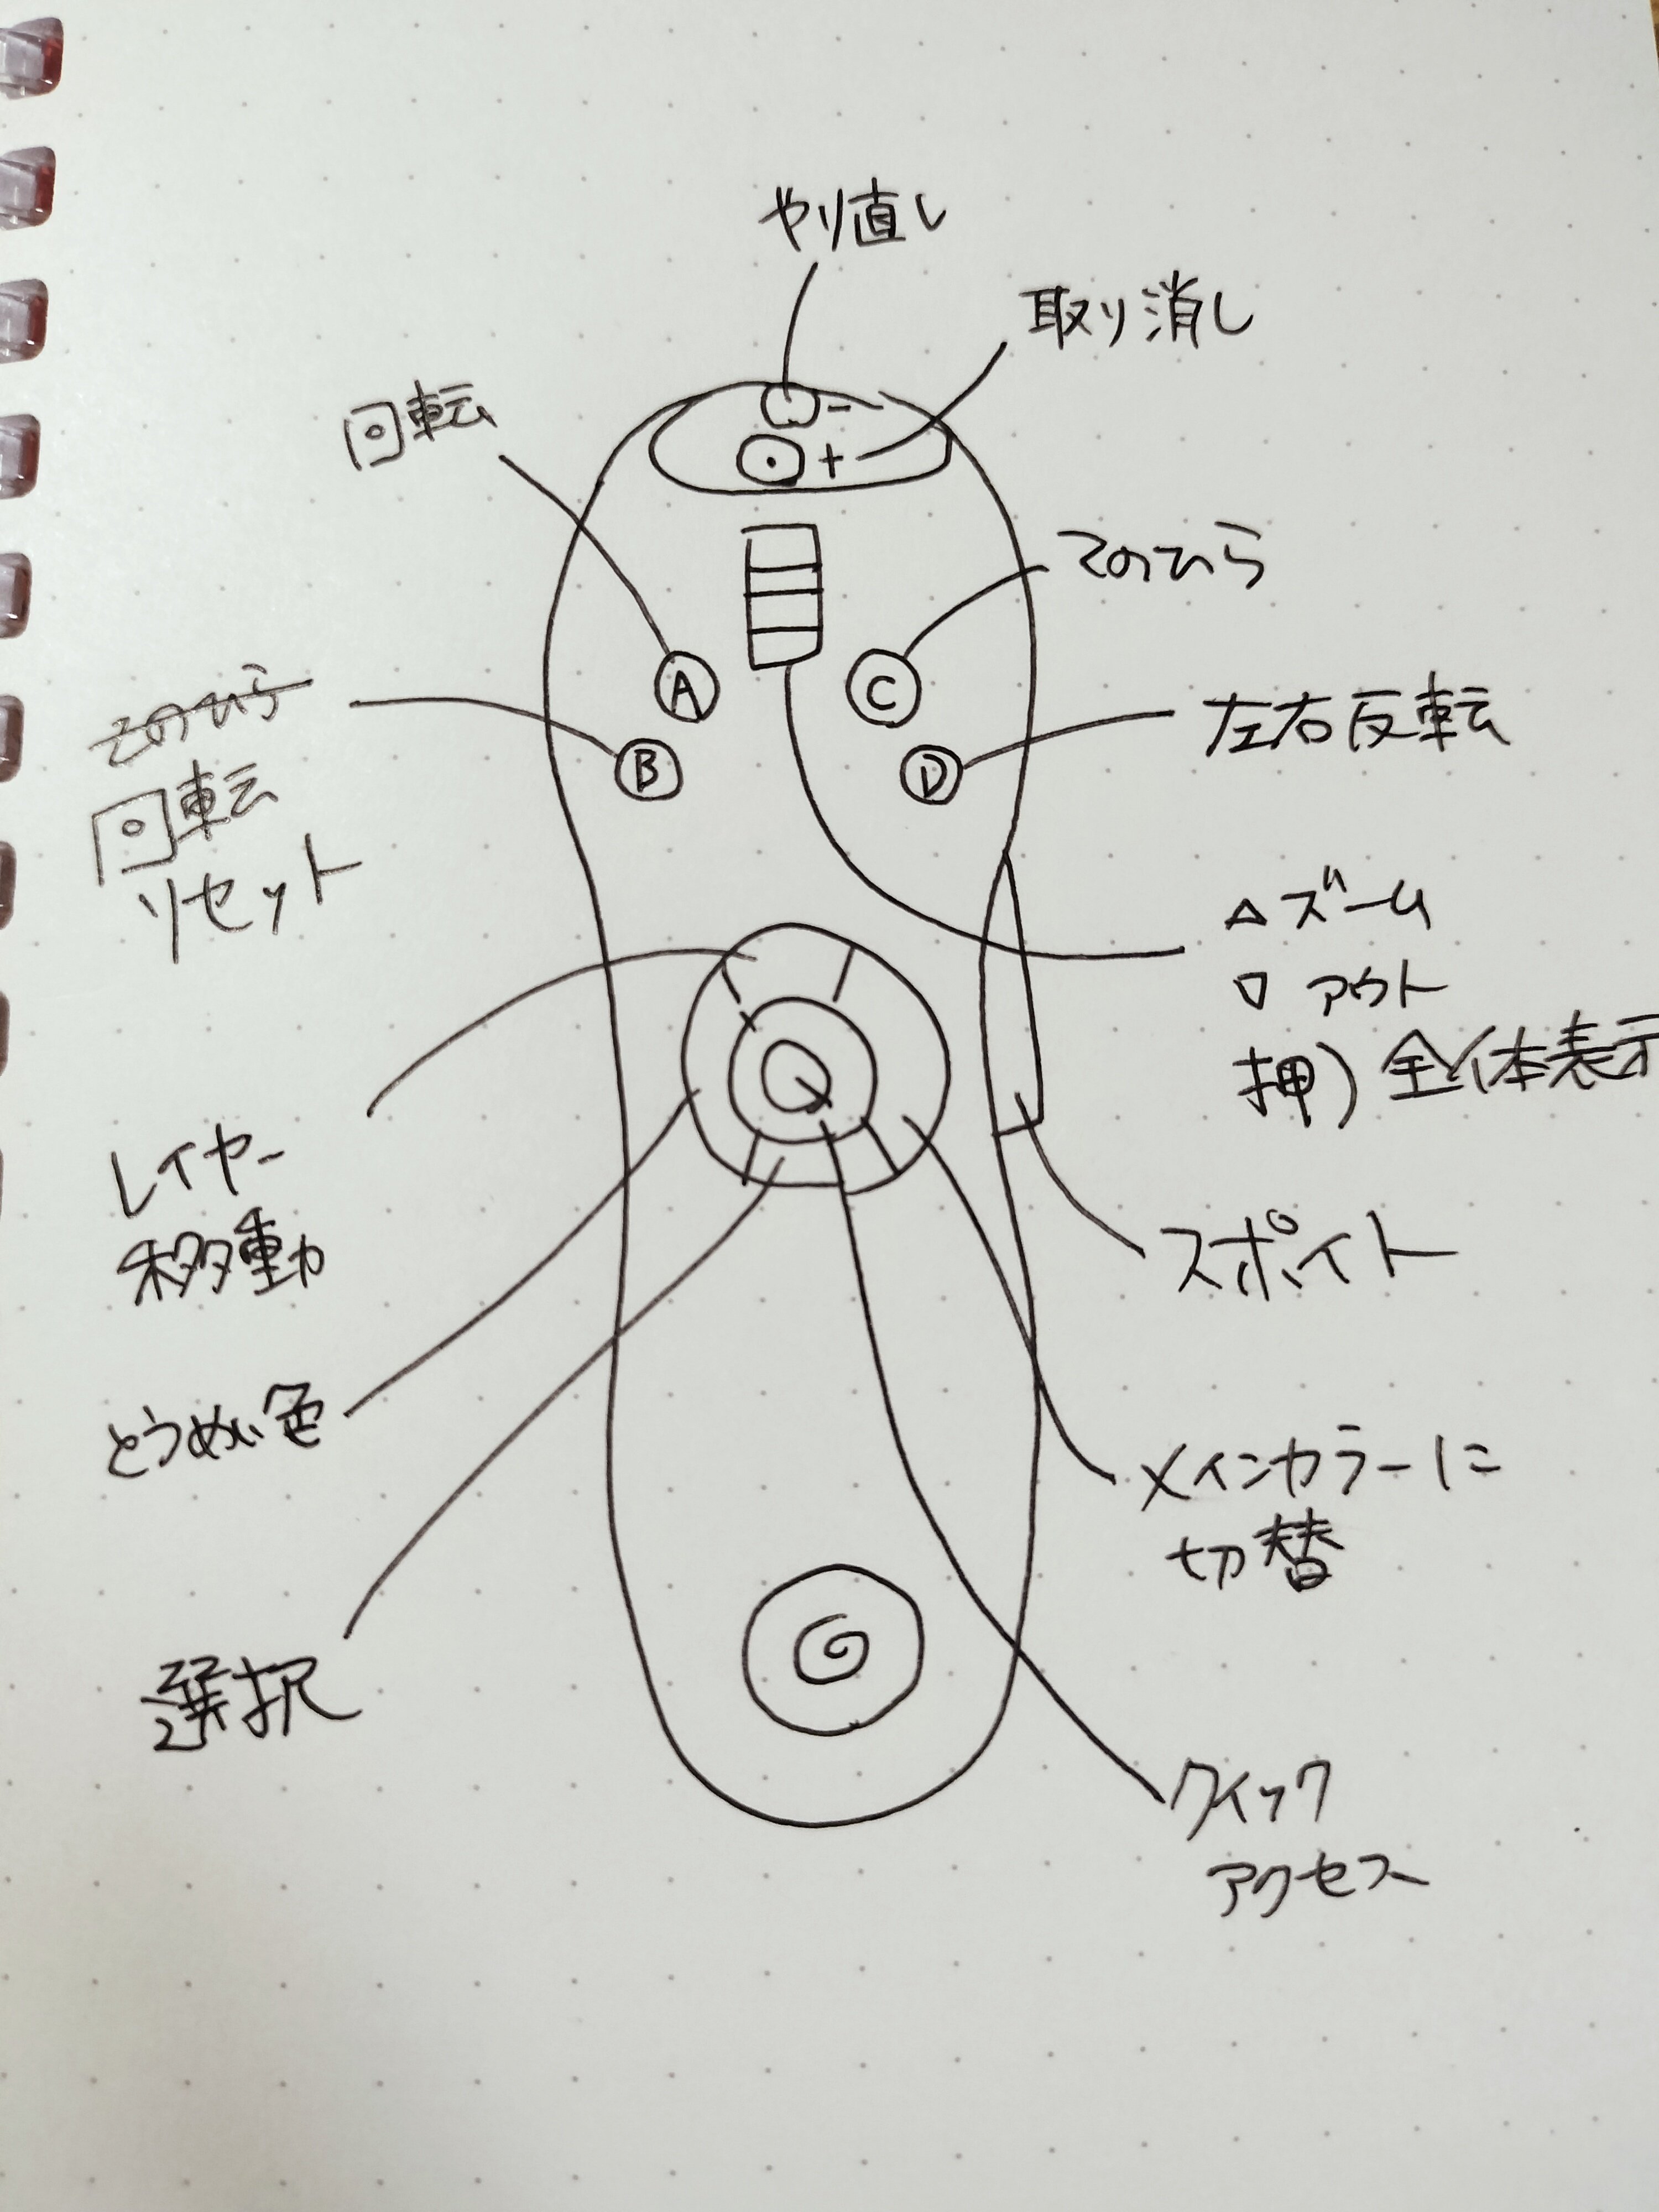 やり直し
取り消し
回転
-
+
てのひら
A
C
てのひら
左右反転
B
D
回転
リセット
△ズーム
▽アウト
押)全体表示
レイヤー
移動
スポイト
とうめい色
メインカラーに
切替
選択
クイック
アクセス